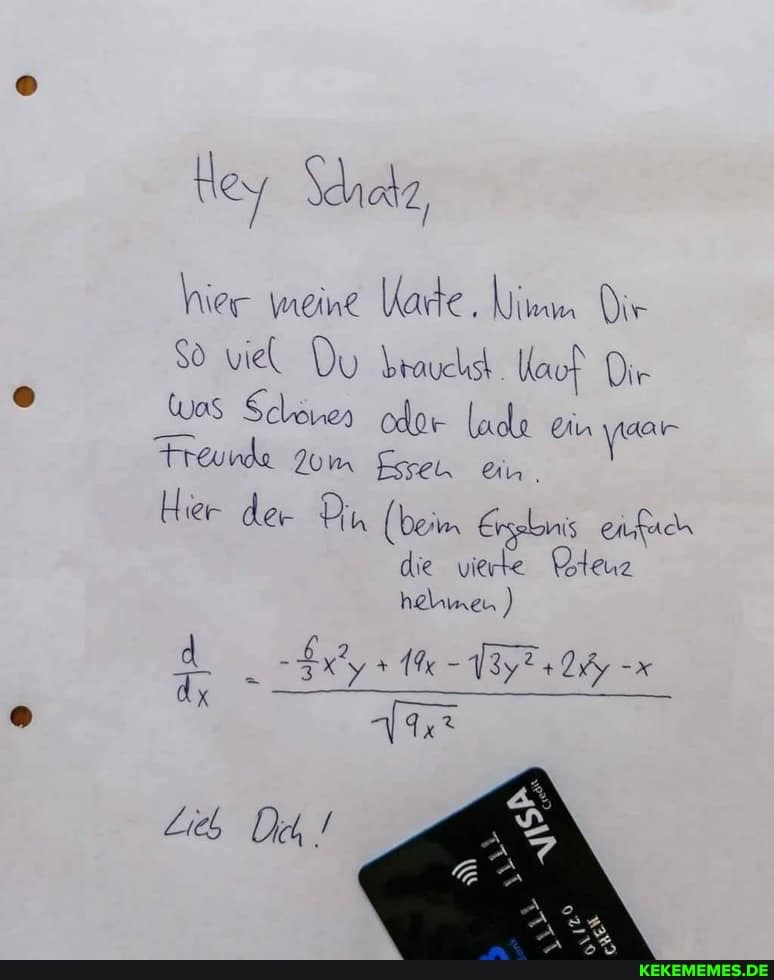 Hey Schatz,
hier meine Karte. Nimm Dir
so viel Du brauchst. Kauf Dir
was Schönes oder lade ein paar
Freunde zum Essen ein.
Hier der Pin (beim Ergebnis einfach
die vierte Potenz
nehmen)
d/dx = (-6/3x²y + 19x - √3y² + 2x²y - x) / √9x²
Lieb Dich!
VISA
Credit
01/20
CHEN
KEKEMEMES.DE